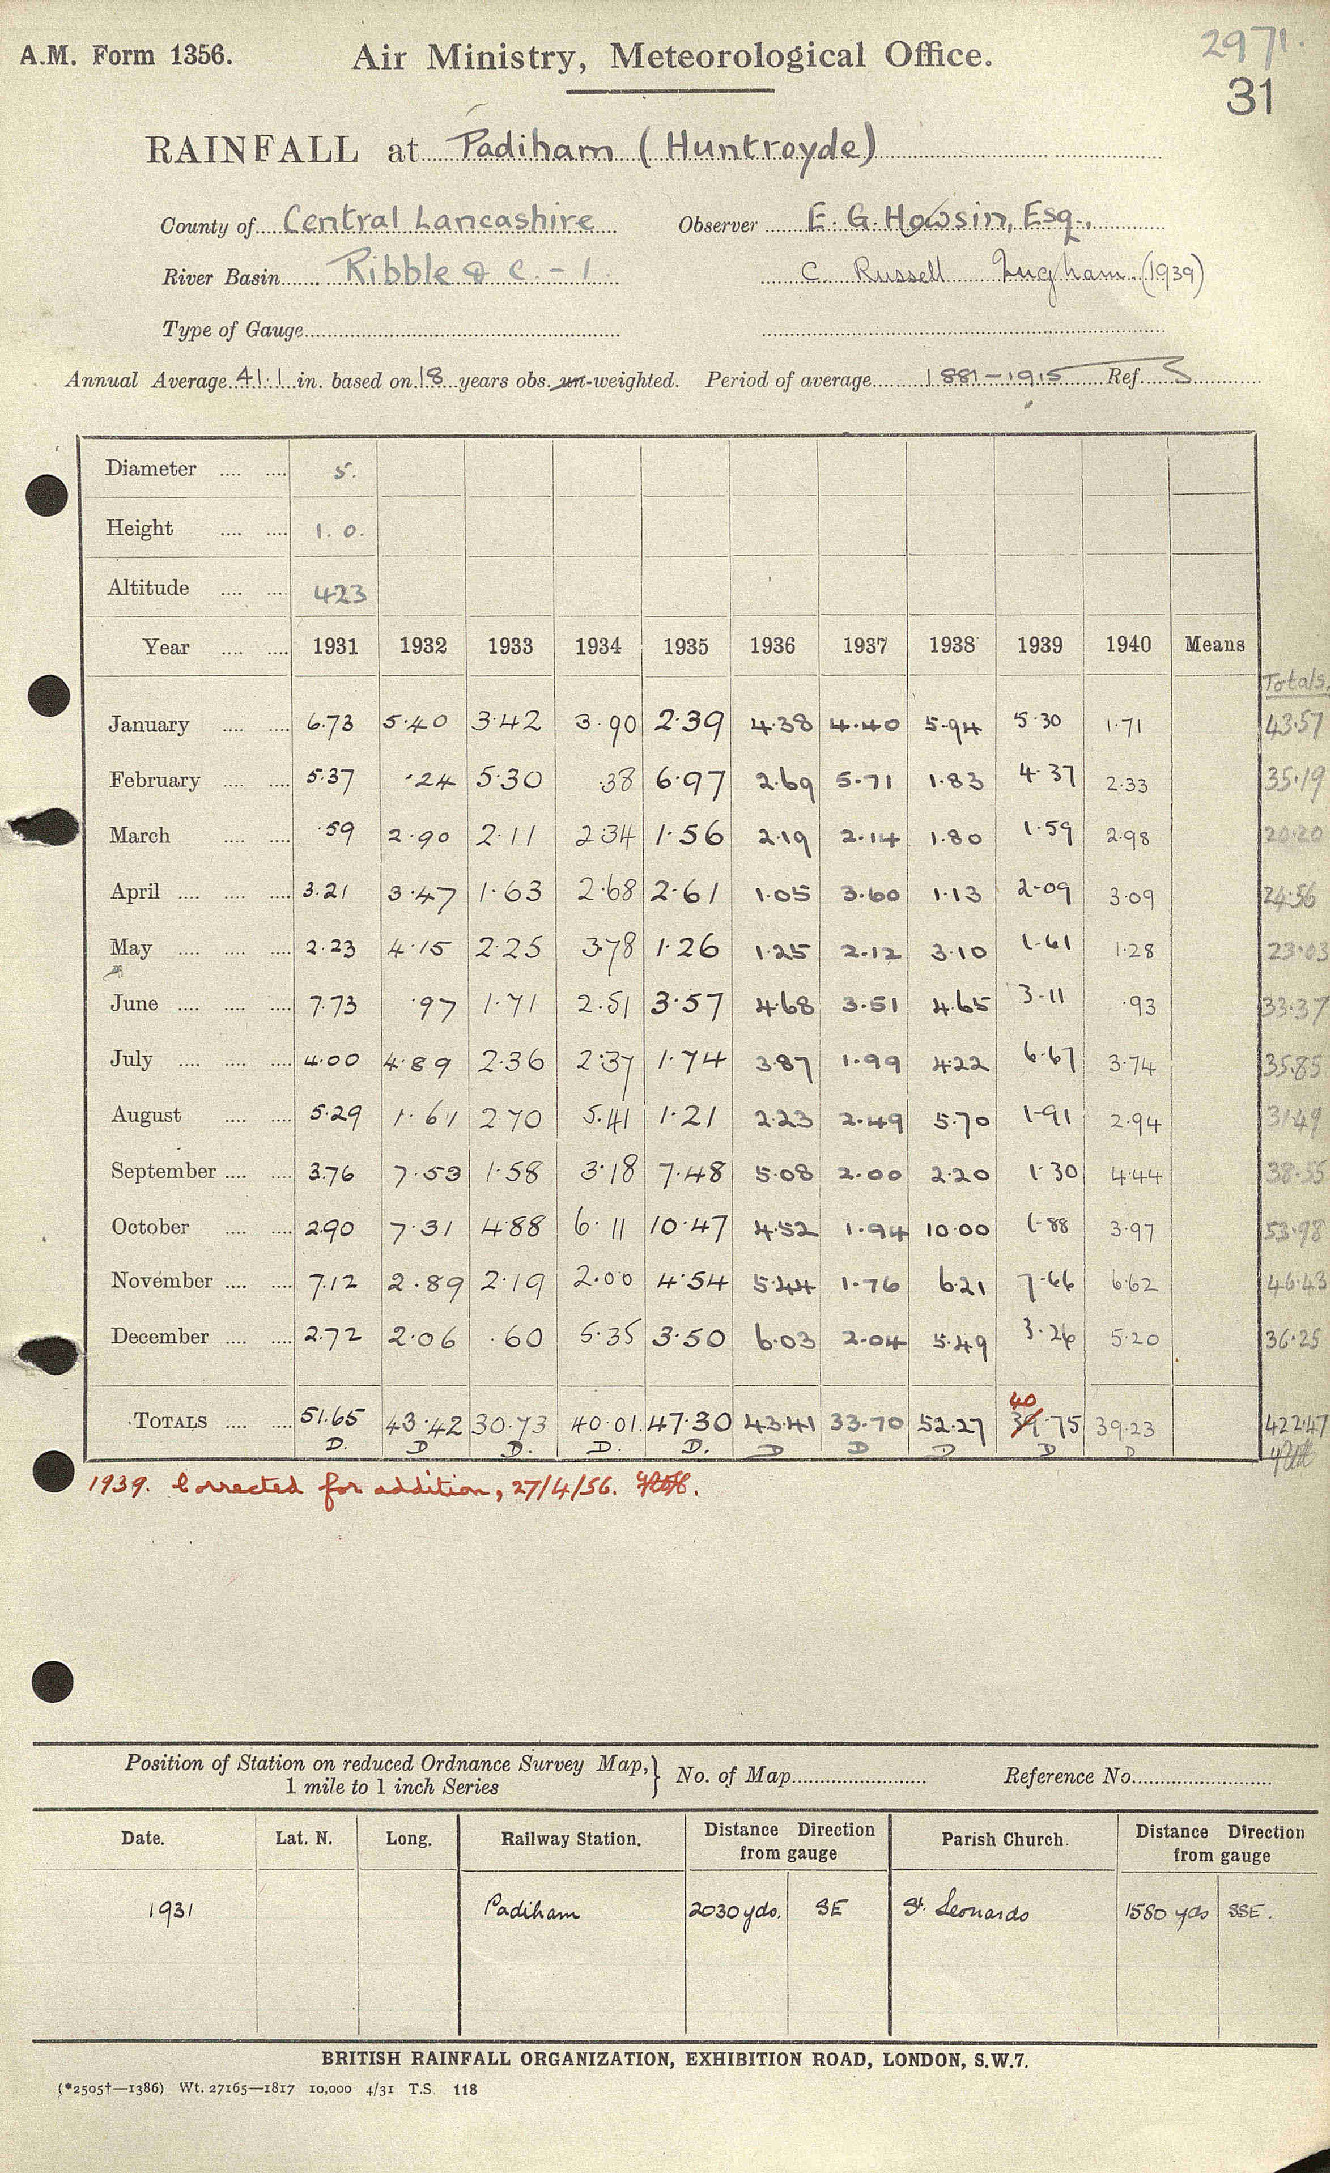 A.M. Form 1356. Air Ministry, Meteorological Office. 2971.
31
RAINFALL at Padiham (Huntroyde)
County of Central Lancashire Observer E. G. Howsin, Esq.,
River Basin Ribble & C. - 1 C. Russell Ingham. (1939)
Type of Gauge
Annual Average 41.1 in. based on 18 years obs. un-weighted. Period of average 1881-1915 Ref. 3
Diameter 5.
Height 1.0.
Altitude 423
Year 1931 1932 1933 1934 1935 1936 1937 1938 1939 1940 Means
Totals.
January 6.73 5.40 3.42 3.90 2.39 4.38 4.40 5.94 5.30 1.71 43.57
February 5.37 .24 5.30 .38 6.97 2.69 5.71 1.83 4.37 2.33 35.19
March .59 2.90 2.11 2.34 1.56 2.19 2.14 1.80 1.59 2.98 20.20
April 3.21 3.47 1.63 2.68 2.61 1.05 3.60 1.13 2.09 3.09 24.56
May 2.23 4.15 2.25 3.78 1.26 1.25 2.12 3.10 1.61 1.28 23.03
June 7.73 .97 1.71 2.51 3.57 4.68 3.51 4.65 3.11 .93 33.37
July 4.00 4.89 2.36 2.37 1.74 3.87 1.99 4.22 6.67 3.74 35.85
August 5.29 1.61 2.70 5.41 1.21 2.23 2.49 5.70 1.91 2.94 31.49
September 3.76 7.53 1.58 3.18 7.48 5.08 2.00 2.20 1.30 4.44 38.55
October 2.90 7.31 4.88 6.11 10.47 4.52 1.94 10.00 1.88 3.97 53.98
November 7.12 2.89 2.19 2.00 4.54 5.44 1.76 6.21 7.66 6.62 46.43
December 2.72 2.06 .60 5.35 3.50 6.03 2.04 5.49 3.26 5.20 36.25
40
TOTALS 51.65 43.42 30.73 40.01 47.30 43.41 33.70 52.27 39.75 39.23 422.47
D. D D. D. D. D D D D D
1939. Corrected for addition, 27/4/56.
Position of Station on reduced Ordnance Survey Map, 1 mile to 1 inch Series } No. of Map Reference No.
Date. Lat. N. Long. Railway Station. Distance from gauge Direction Parish Church. Distance from gauge Direction
1931 Padiham 2030 yds. SE St. Leonards 1580 yds SSE.
BRITISH RAINFALL ORGANIZATION, EXHIBITION ROAD, LONDON, S.W.7.
(*2505†—1386) Wt. 27165—1817 10,000 4/31 T.S. 118